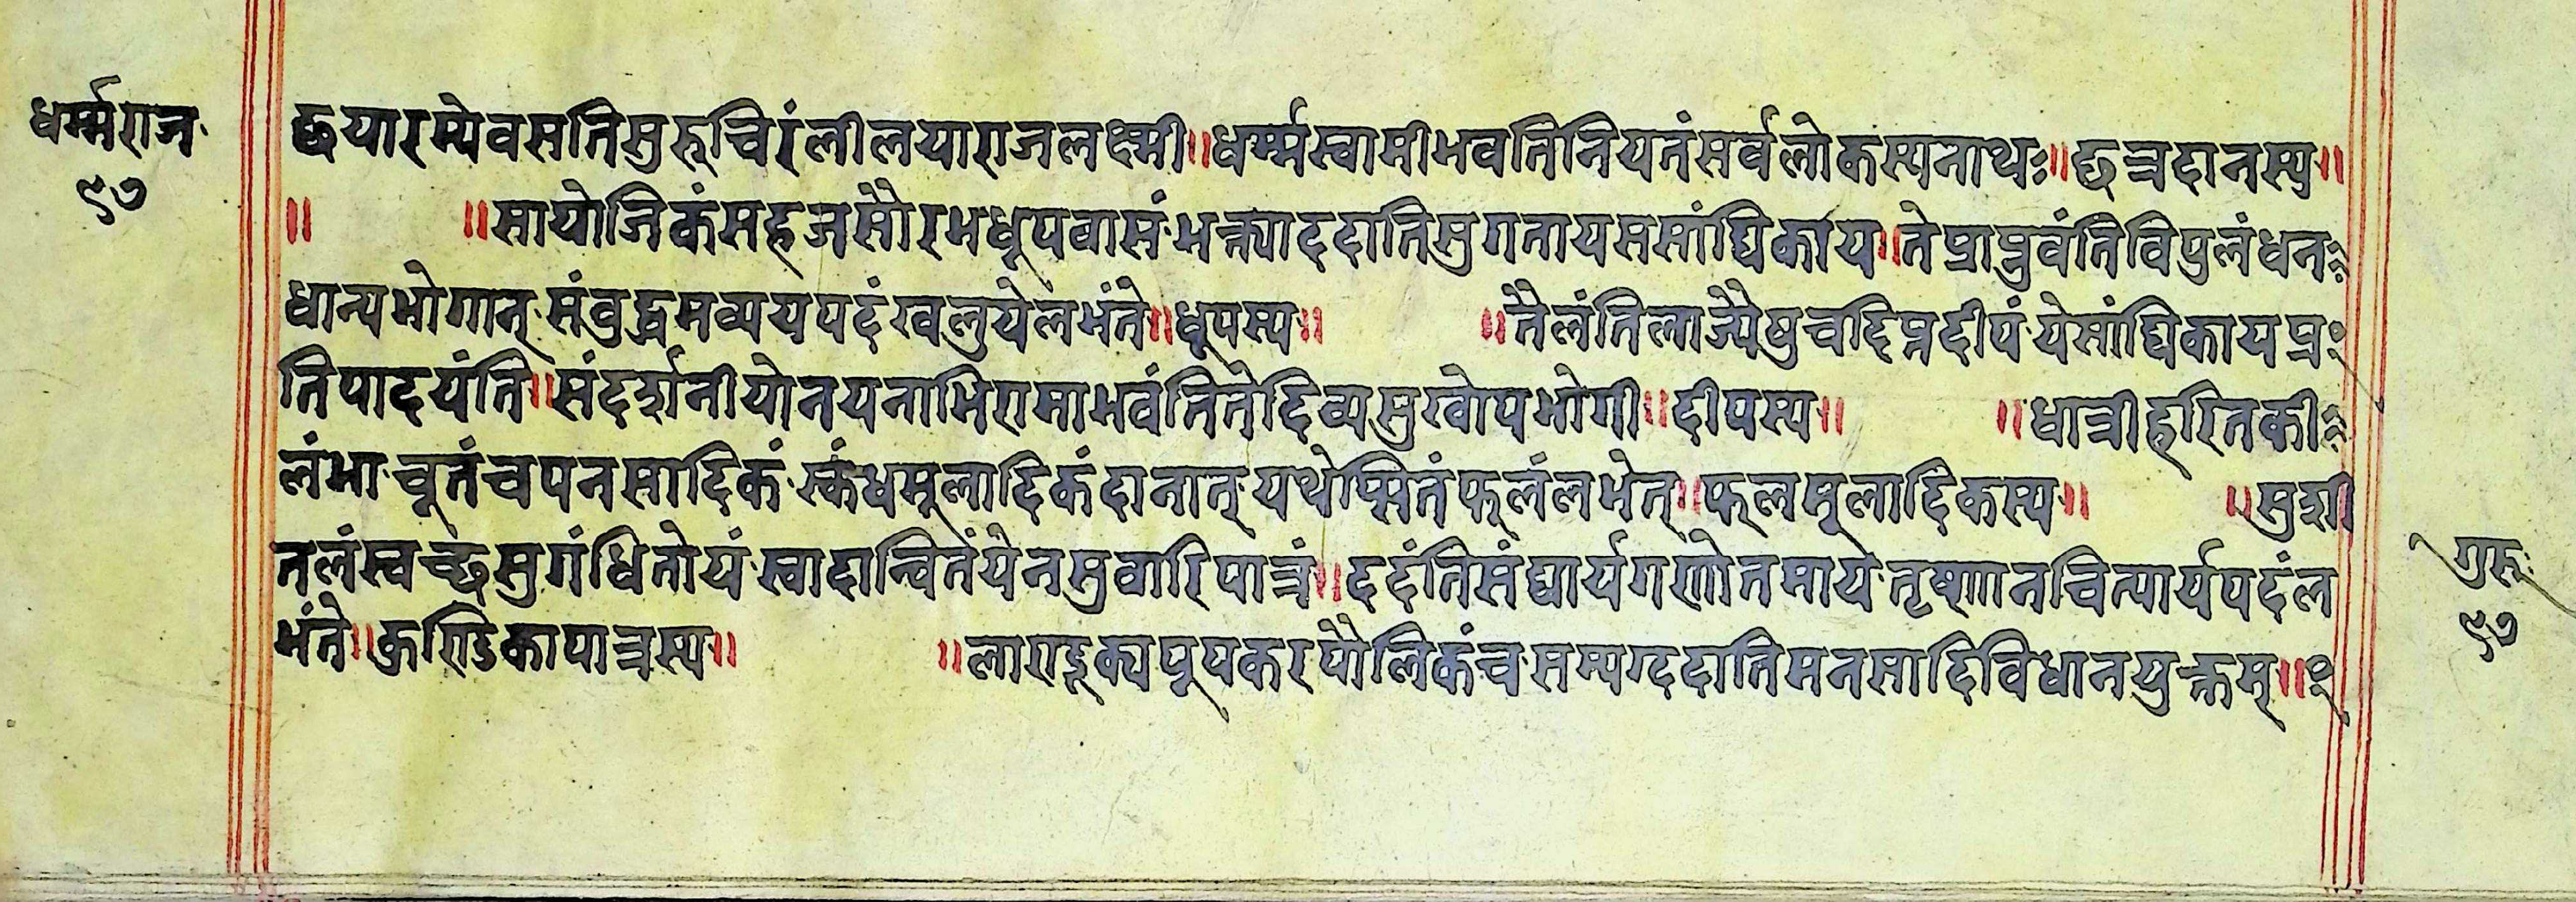 धर्म्मराज
१७
छयारम्येवसतिसुरुचिरंलीलयाराजलक्ष्मी॥धर्म्मस्वामीभवतिनियतंसर्वलोकस्यनाथः॥छत्रदानस्य॥
॥ ॥सायोजिकंसहजसौरभधूपवासंभक्त्याददातिसुगतायससांघिकाय॥तेप्राप्नुवंतिविपुलंधन
धान्यभोगान्संवुद्धमव्ययपदंखलुयेलभंते॥धूपस्य॥ ॥तैलंतिलाज्यैषुचदिप्रदीपंयेसांघिकायप्र
तिपादयंति॥संदर्शनीयोनयनाभिरामाभवंतितेदिव्यसुखोपभोगी॥दीपस्य॥ ॥धात्रीहरितकी
लंभाचूतंचपनसादिकंस्कंधमूलादिकंदानात्यथेप्सितंफलंलभेत्॥फलमूलादिकस्य॥ ॥सुशी
तलंस्वच्छसुगंधितोयंस्वादान्वितंयेनसुवारिपात्रं॥ददंतिसंघार्यगणोतमायतृष्णानचित्पार्यपदंल
भंते॥कुण्डिकापात्रस्य॥ ॥लाराडूक्यपूपकरपौलिकंचसम्यग्ददातिमनसादिविधानयुक्तम्॥
गुरुः
१७